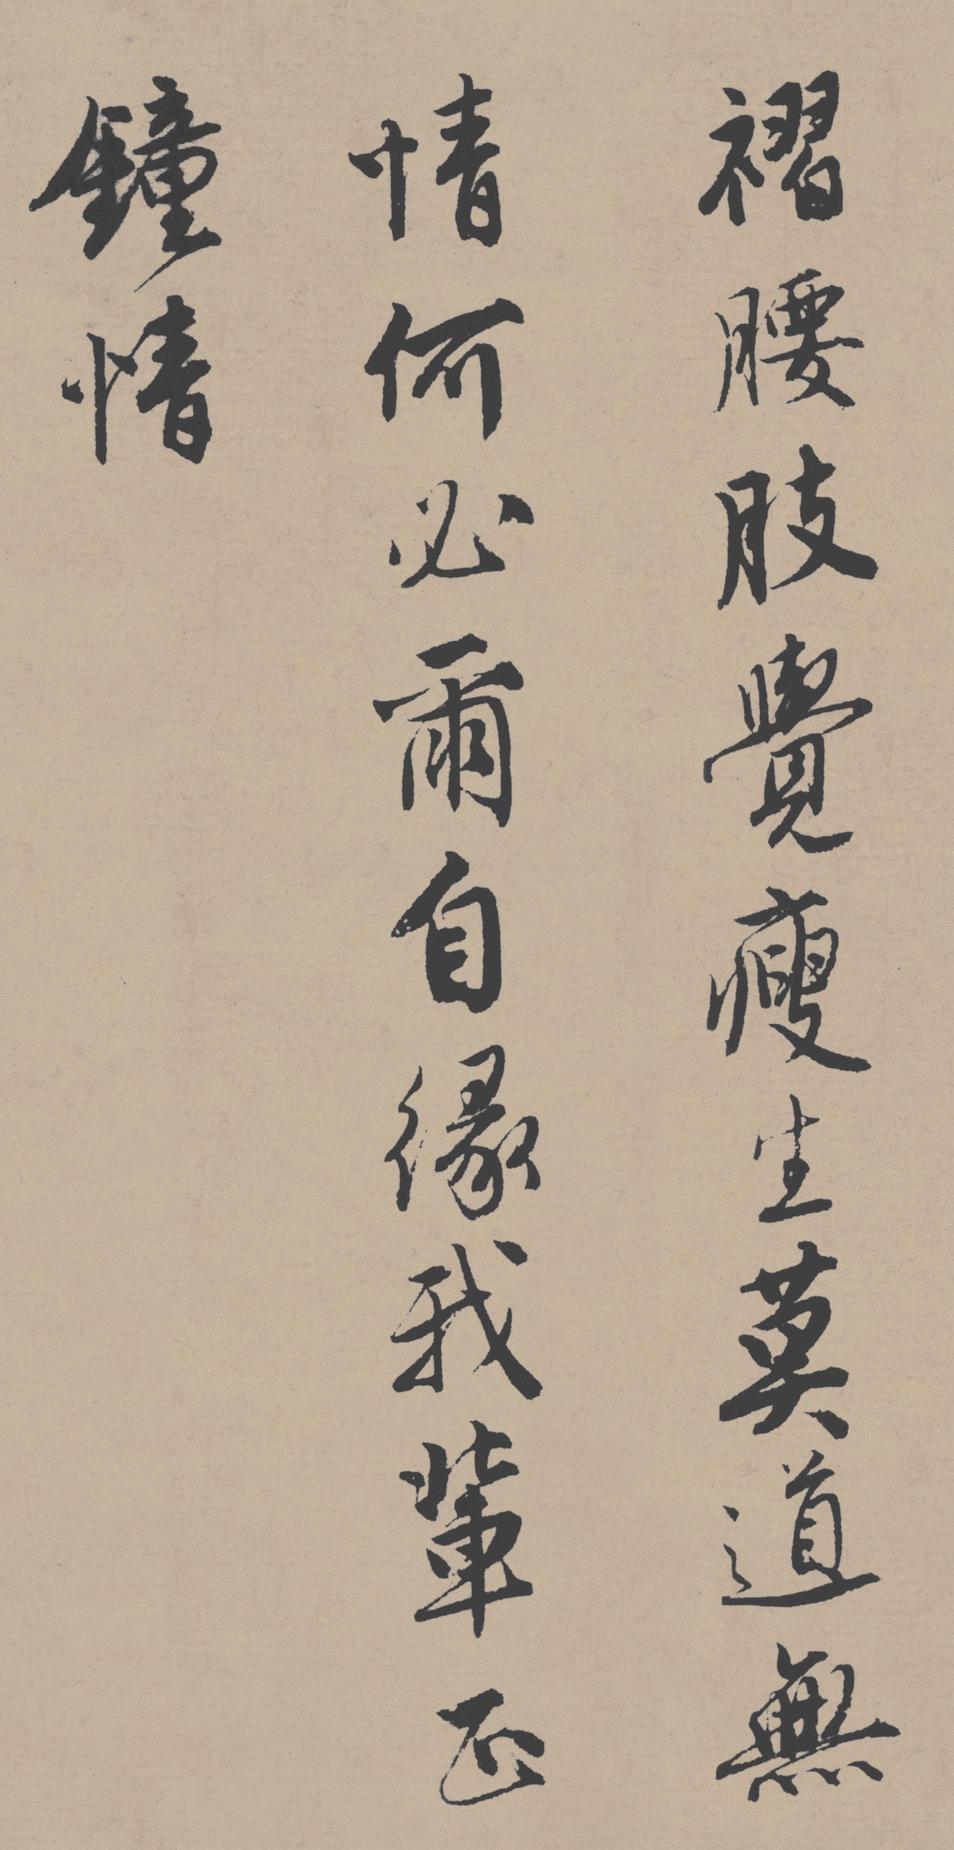 褶腰肢覺瘦生莫道無
情何必爾自緣我輩正
鐘情